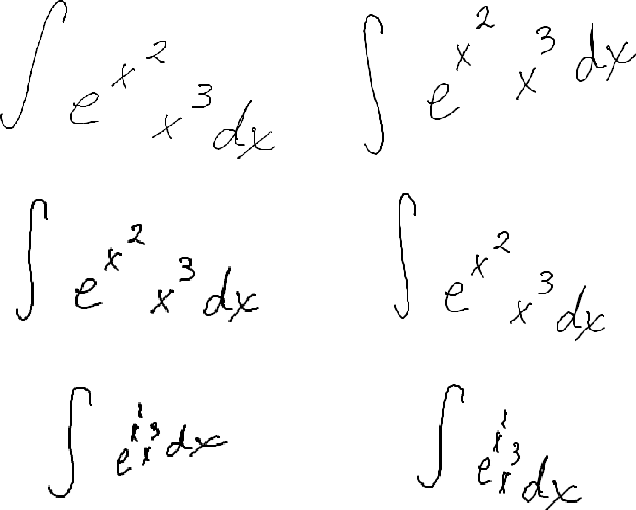 ∫ e^{x^2} x^3 dx ∫ e^{x^2} x^3 dx
∫ e^{x^2} x^3 dx ∫ e^{x^2} x^3 dx
∫ e^{x^1} x^3 dx ∫ e^{x^1} x^3 dx